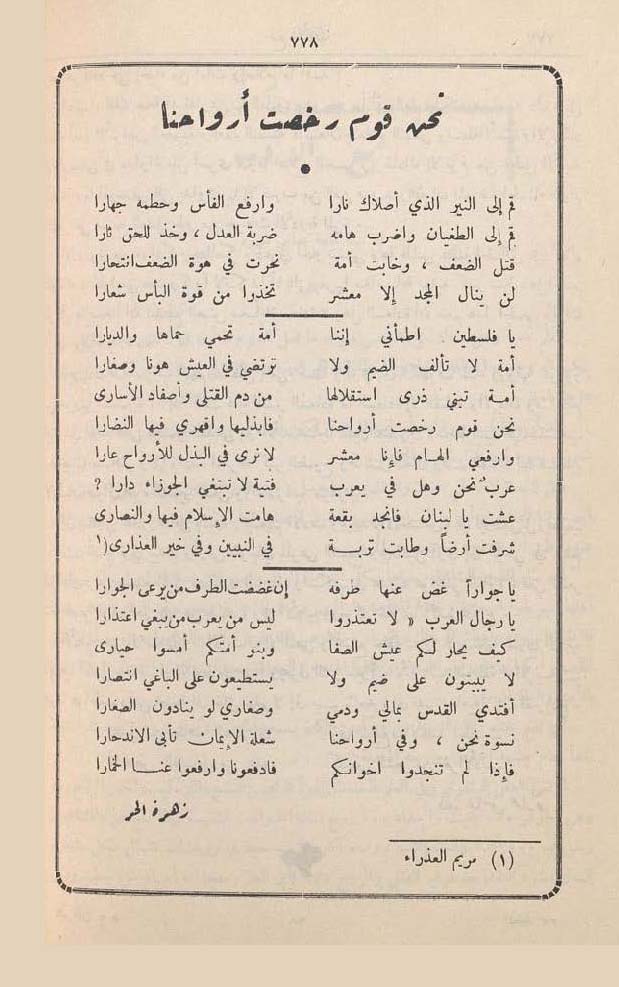 ٧٧٨
نحن قوم رخصت أرواحنا
قم إلى النير الذي أصلاك نارا وارفع الفأس وحطمه جهارا
قم إلى الطغيان واضرب هامه ضربة العدل ، وخذ للحق ثارا
قتل الضعف ، وخابت أمة نحرت في هوة الضعف انتحارا
لن ينال المجد إلا معشر تخذرا من قوة البأس شعارا
يا فلسطين . اطمأني إننا أمة تحمي حماها والديارا
أمة لا تألف الضيم ولا ترتضي في العيش هونا وصغارا
أمة تبني ذرى استقلالها من دم القتلى وأصفاد الأسارى
نحن قوم رخصت أرواحنا فابذليها واقهري فيها النضارا
وارفعي الهام فإنا معشر لا نرى في البذل للأرواح عارا
عرب نحن وهل في يعرب فتية لا تبتغي الجوزاء دارا ؟
عشت يا لبنان فانجد بقعة هامت الإسلام فيها والنصارى
شرفت أرضاً وطابت تربة في النبيين وفي خير العذارى(١
يا جواراً غض عنها طرفه إن غضضت الطرف من يرعى الجوارا
يا رجال العرب « لا تعتذروا ليس من يعرب من يبغي اعتذارا
كيف يحار لكم عيش الصفا وبنو أمتكم أمسوا حيارى
لا يبيتون على ضيم ولا يستطيعون على الباغي انتصارا
أفتدي القدس بمالي ودمي وصغاري لو ينادون الصغارا
نسوة نحن ، وفي أرواحنا شعلة الإيمان تأبى الاندحارا
فإذا لم تنجدوا اخوانكم فادفعونا وارفعوا عنا الخمارا
زهرة الحر
(١) مريم العذراء